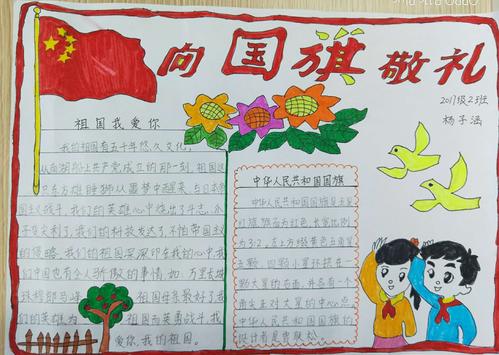 向国旗敬礼
2017级2班
杨子涵
祖国我爱你
我的祖国有五千年悠久文化。
从南湖船上共产党成立的那一刻，祖国这
只东方雄狮从噩梦中醒来，与日本帝
国主义战斗，我们的英雄心中烧出了斗志，
我们的科技发达了，不怕帝国
的侵略，我们的祖国深深印在我的心中，我
们中国也有令人骄傲的事情，如：万里长城
珠穆朗玛峰
祖国母亲最好了，我
们的英雄为
祖国而英勇战斗，我
爱你，我的祖国。
中华人民共和国国旗
中华人民共和国国旗是五星
红旗，旗面为红色，长宽比例
为3:2，左上方缀黄色五角星
五颗，四颗小星环拱在一
颗大星的右面，并各有一个
角尖正对大星的中心点。
中华人民共和国国旗的
设计者是曾联松。